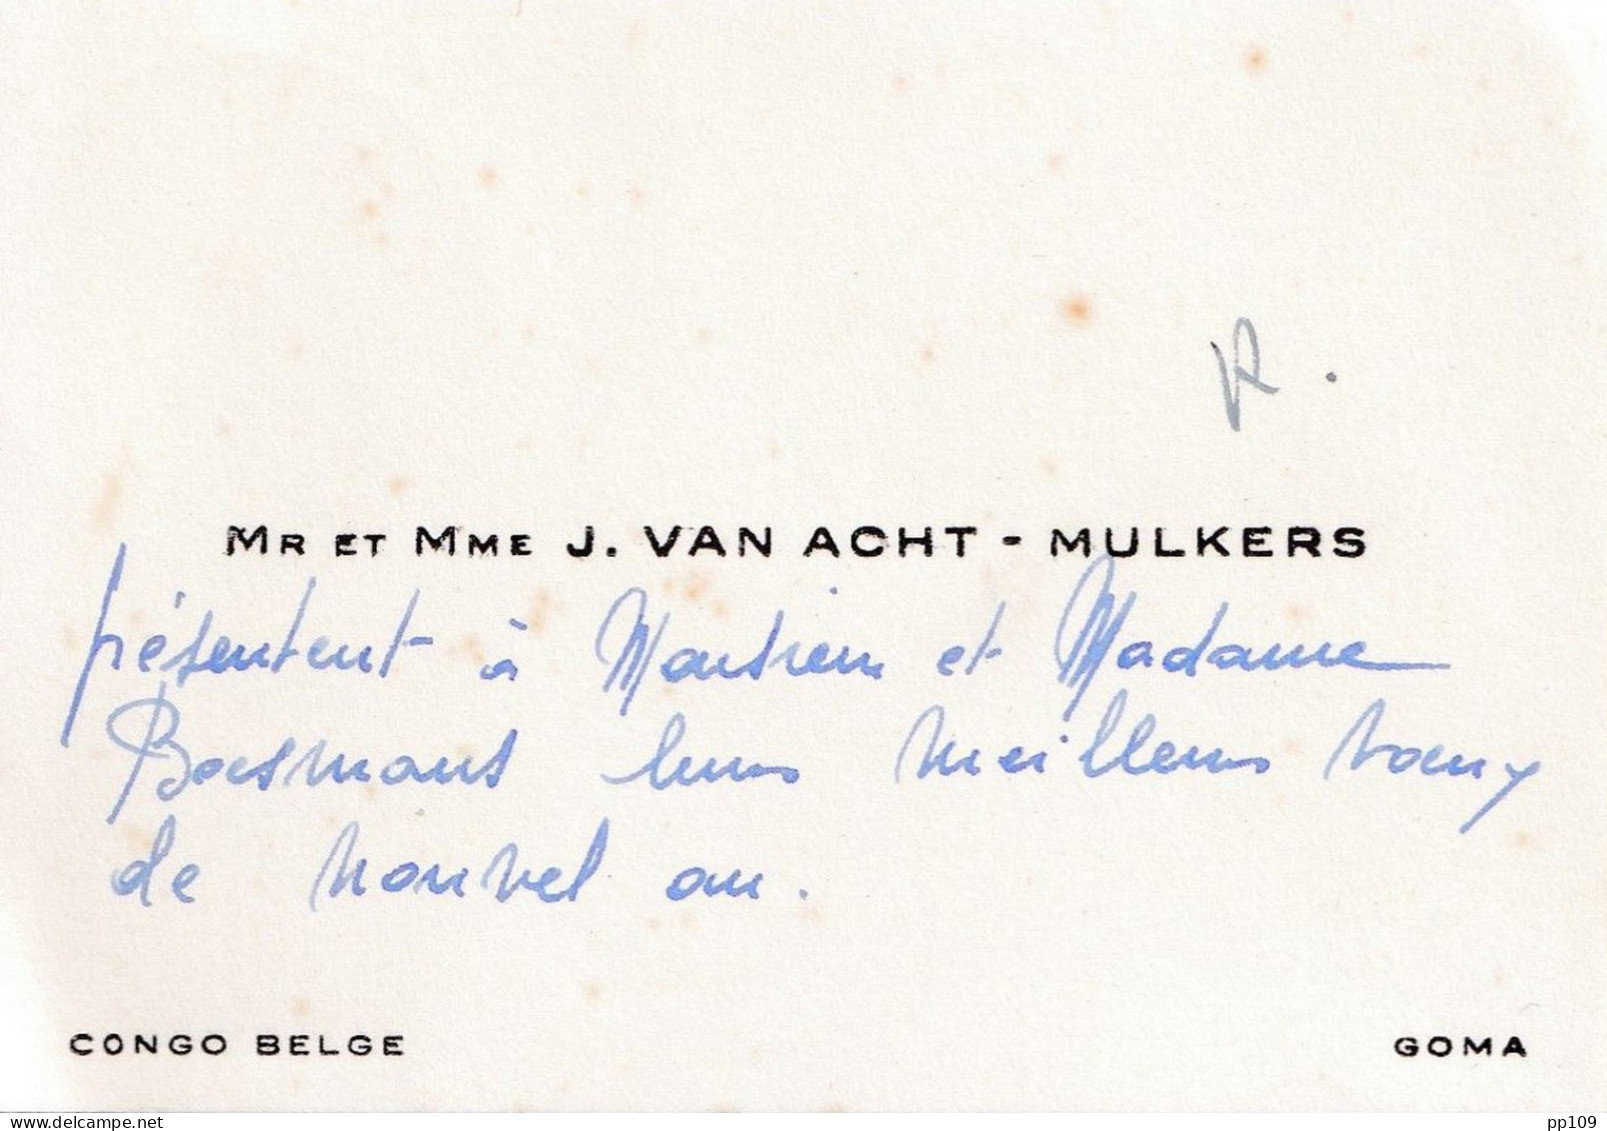 R.
MR ET MME J. VAN ACHT - MULKERS
présentent à Monsieur et Madame
Bosmans leurs meilleurs vœux
de nouvel an.
CONGO BELGE
GOMA
www.delcampe.net
pp109